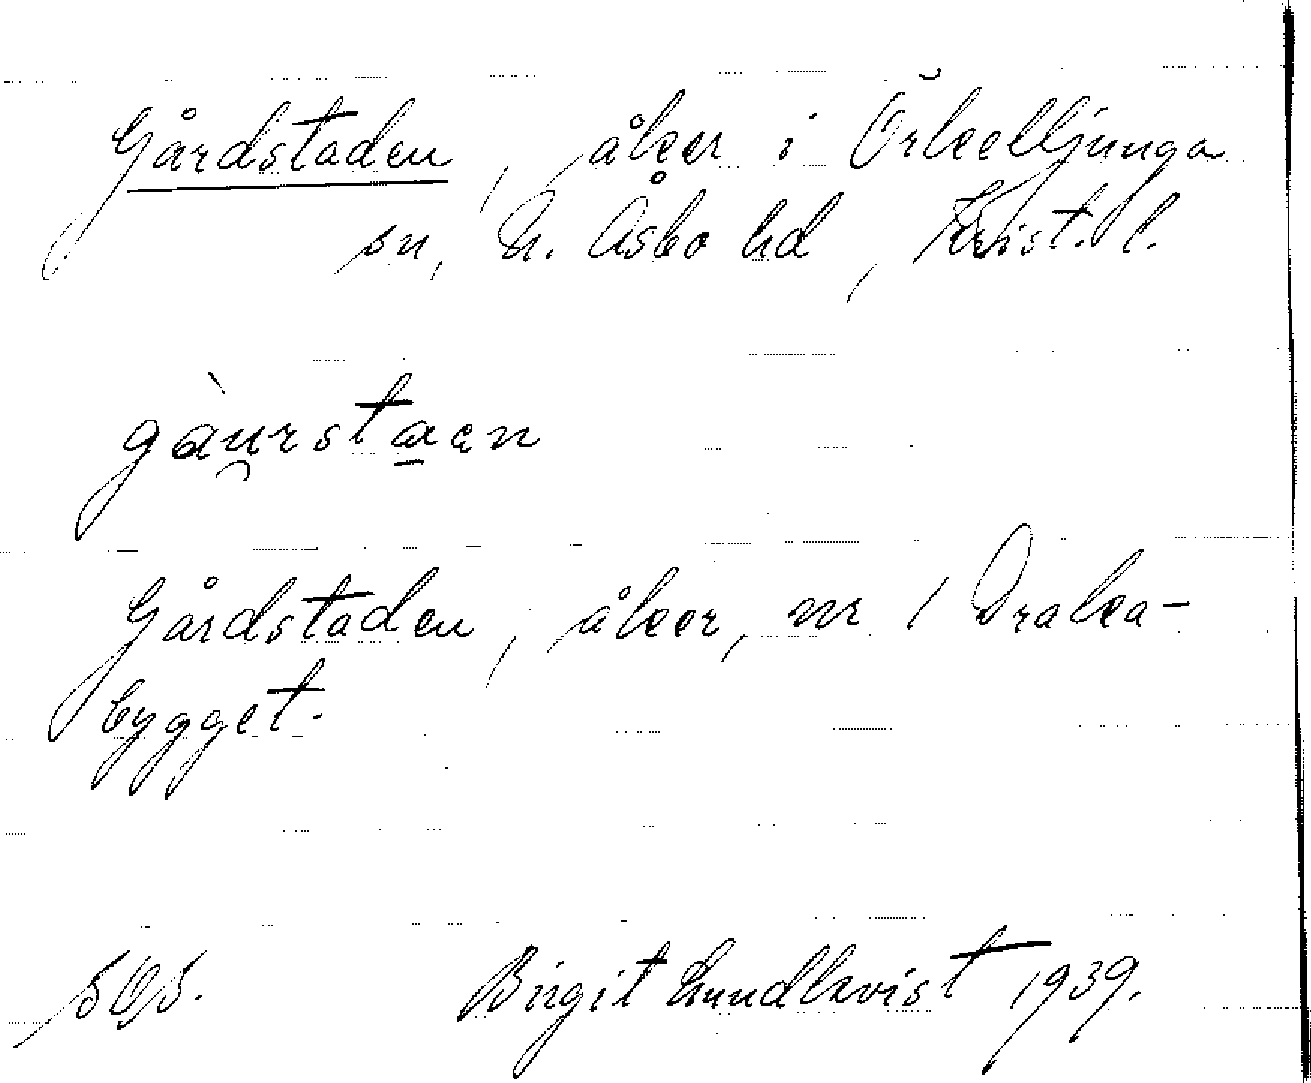 Gårdstaden, åker i Örkelljunga
sn, N. Åsbo hd, Krist. l.
gàu̯rsta̱en
Gårdstaden, åker, nr 1 Draka-
bygget.
Birgit Lundkvist 1939.